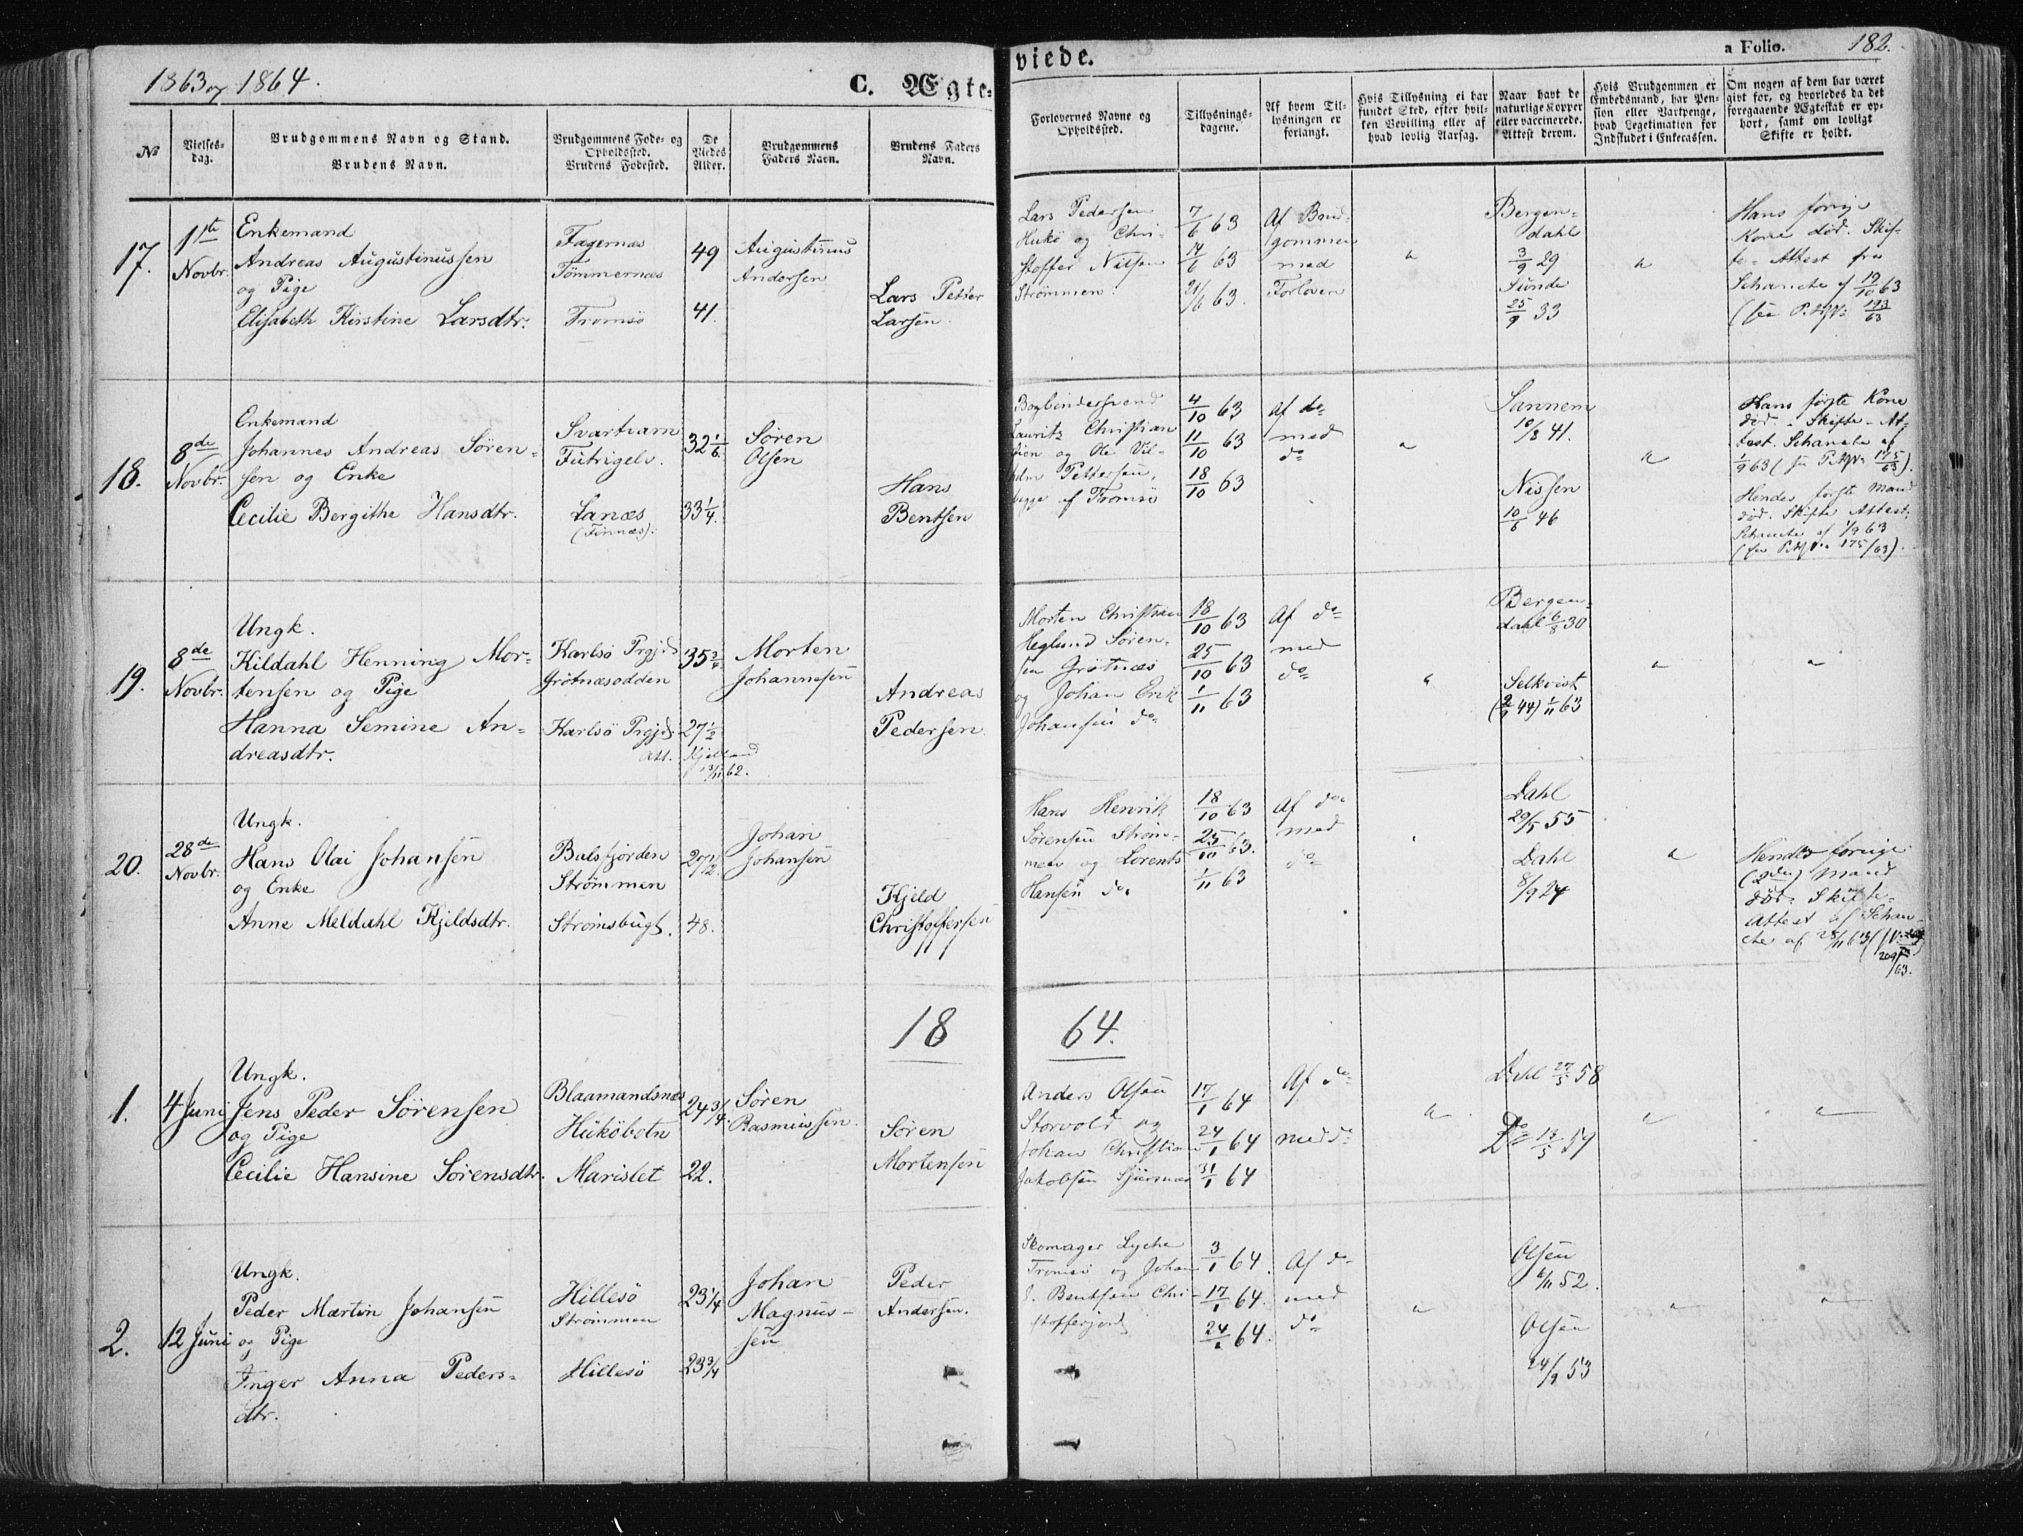 1863 og 1864.
C. Ægte-
viede.
a Folio. 182.
No
Vielses-
dag.
Brudgommens Navn og Stand.
Brudens Navn.
Brudgommens Føde- og
Opholdssted.
Brudens Fødested.
De
Viedes
Alder.
Brudgommens
Faders Navn.
Brudens Faders
Navn.
Forlovernes Navne og
Opholdssted.
Tillysnings-
dagene.
Af hvem Til-
lysningen er
forlangt.
Hvis Tillysning ei har
fundet Sted, efter hvil-
ken Bevilling eller af
hvad lovlig Aarsag.
Naar havt de
naturlige Kopper
eller vaccinerede.
Attest derom.
Hvis Brudgommen er
Embedsmand, har Pen-
sion eller Vartpenge,
hvad Legitimation for
Indskudet i Enkecassen.
Om nogen af dem har været
gift før, og hvorledes da det
foregaaende Ægteskab er op-
hørt, samt om lovligt
Skifte er holdt.
17.
1ste
Novbr.
Enkemand
Andreas Augustinussen
og Pige
Elisabeth Kirstine Larsdtr.
Fagernæs
Tømmernæs
Tromsø
49
41.
Augustinus
Andersen
Lars Petter
Larsen.
Lars Pedersen
Hukø og Chri-
stoffer Nilsen
Strømmen.
7/6 63
14/6 63
21/6 63.
Af Brud-
gommen
med
Forloven
"
Bergen-
dahl
3/9 29
Sunde
25/9 33
"
Hans forige
Kone død. Skif-
te-Attest fra
Schancke af 19/10 63
18.
8de
Novbr.
Enkemand
Johannes Andreas Søren-
sen og Enke
Cecilie Bergithe Hansdtr.
Svartvam
Futrigelv.
Lanæs
(Finnæs).
32 1/6
33 1/4.
Søren
Olsen
Hans
Bentsen
Bogbindersvend
Lauritz Christian
sien og Ole Vil-
helm Pettersen,
begge af Tromsø
4/10 63
11/10 63
18/10 63
Af do
med
do
"
Sannem
10/3 41.
Nissen
10/6 46
"
Hans første Kone
død. Skifte-At-
test. Schancke af
1/9 63
Hendes første Mand
død. Skifte Attest.
Schancke af 1/9 63
19.
8de
Novbr.
Ungk.
Kildahl Henning Mor-
tensen og Pige
Hanna Semine An-
dreasdtr.
Karlsø Prgjd
Grøtnæsodden
Karlsø Prgjd.
Att.
35 3/4
27 1/2
Kjelland
13/11 62.
Morten
Johannesen
Andreas
Pedersen
Morten Christian
Heglund Søren-
sen Grøtnæs
og Johan Erik
Johansen do
18/10 63
25/10 63
1/11 63
Af do
med
do
"
Bergen-
dahl 6/8 30
Selkvist
(2/9 44) 1/11 63
"
"
20.
28de
Novbr.
Ungk.
Hans Olai Johansen
og Enke
Anne Meldahl Kjeldsdtr.
Balsfjorden
Strømmen
Strømsbugt.
27 1/12
48.
Johan
Johansen
Kjeld
Christoffersen
Hans Henrik
Sørensen Strøm-
men og Lorents
Hansen do
18/10 63
25/10 63.
1/11 63
Af do
med
do
"
Dahl
20/5 55
Dahl
8/9 24
"
Hendes forrige
(2den) Mand
død. Skifte-
Attest af Schan-
cke af 28/11 63
18 64.
1.
4 Juni
Ungk.
Jens Peder Sørensen
og Pige
Cecilie Hansine Sørensdtr.
Blaamandsnæs
Hukøbotn
Marislet
24 3/4
22.
Søren
Rasmussen.
Søren
Mortensen
Anders Olsen
Storvold og
Johan Christian
Jakobsen
17/1 64
24/1 64
31/1 64
Af do
med do
"
Dahl 27/5 58
Do 13/5 59
"
"
2.
12 Juni
Ungk.
Peder Martin Johansen
og Pige
Inger Anna Peders-
dtr.
Hillesø
Strømmen
Hillesø
23 1/4
23 3/4
Johan
Magnus-
sen
Peder
Andersen.
Skomager Lyche
Tromsø og Johan
J. Bentsen Chri-
stoffersjord
3/1 64.
17/1 64.
24/1 64.
Af do
med
do
"
Olsen
6/11 52.
Olsen
24/9 53
"
"